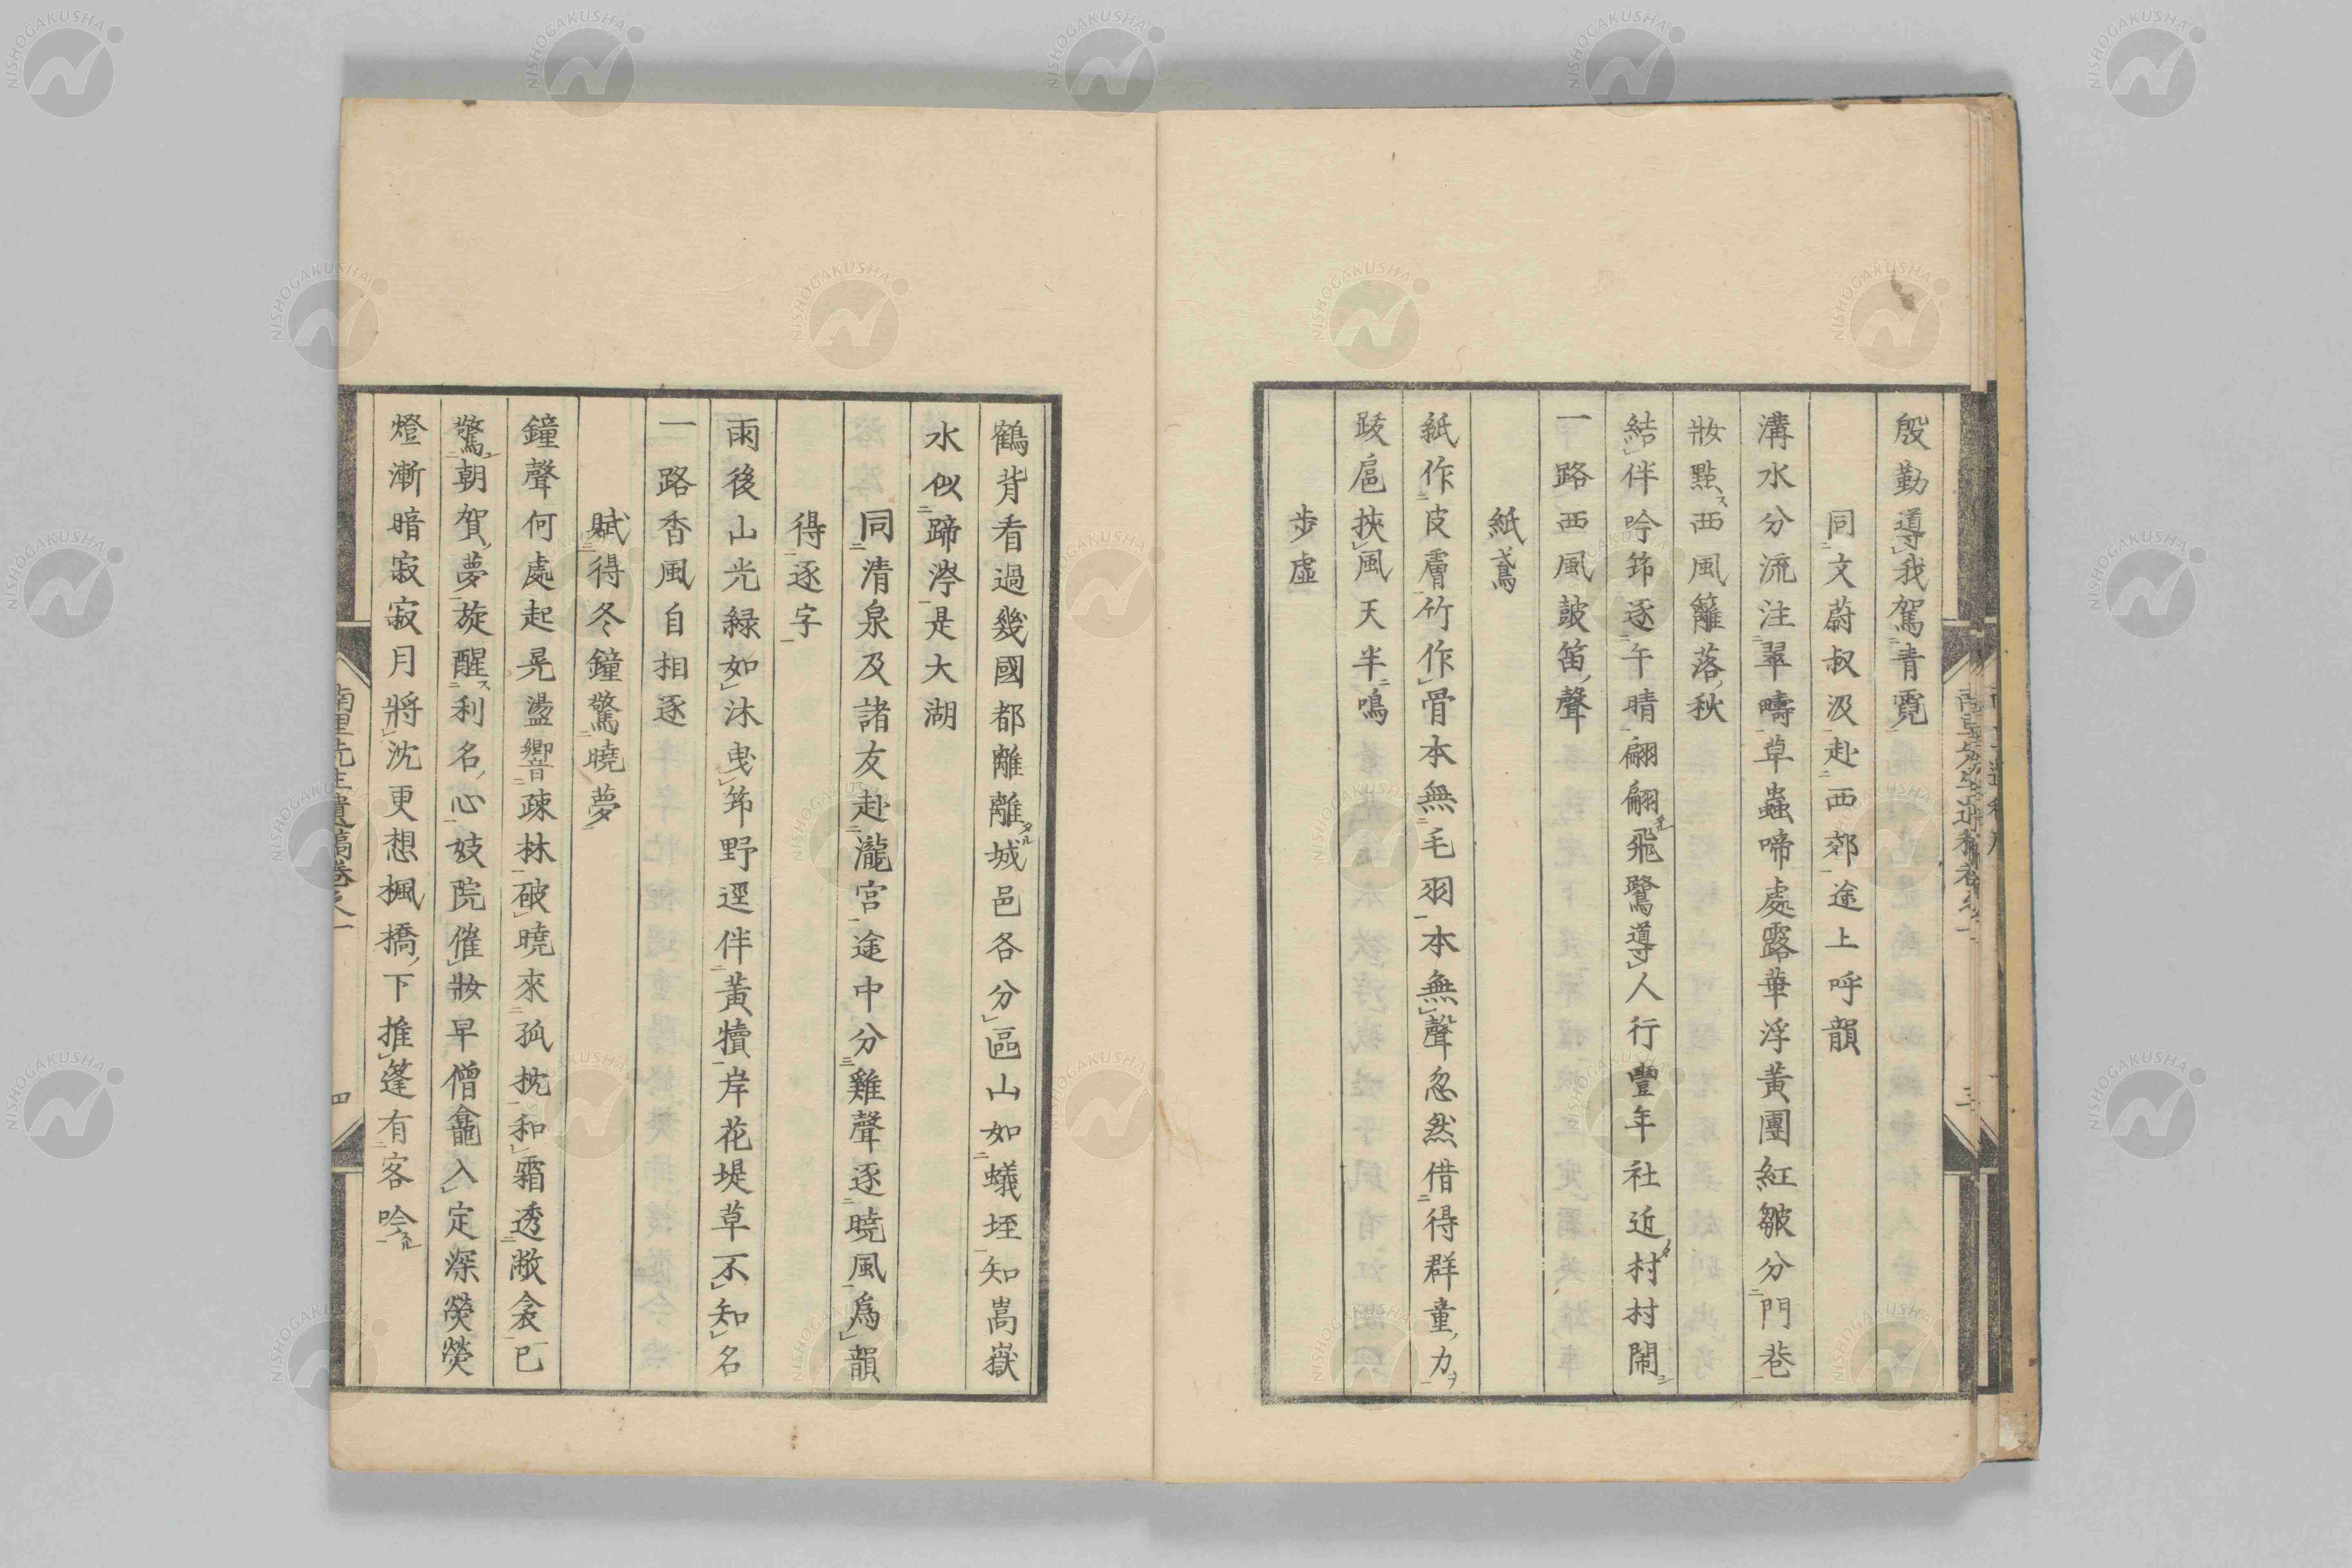 殷勤導我駕青霓
同文蔚叔汲赴西郊途上呼韻
溝水分流注翠疇草蟲啼處露華浮黃團紅皺分門巷
妝點西風籬落秋
結伴吟筇逐午晴翩翩飛鷺導人行豐年社近村村鬧
一路西風皷笛聲
紙鳶
紙作皮膚竹作骨本無毛羽本無聲忽然借得群童力
跋扈挾風天半鳴
步虛
鶴背看過幾國都離離城邑各分區山如蟻垤知嵩嶽
水似蹄涔是大湖
同清泉及諸友赴瀧宮途中分雞聲逐曉風爲韻
得逐字
雨後山光緑如沐曳筇野逕伴黃犢岸花堤草不知名
一路香風自相逐
賦得冬鐘驚曉夢
鐘聲何處起晃盪響疎林破曉來孤枕和霜透敝衾已
驚朝賀夢旋醒利名心妓院催妝早僧龕入定深熒熒
燈漸暗寂寂月將沈更想楓橋下推篷有客吟
南里先生遺稿卷之一
四
NISHOGAKUSHA